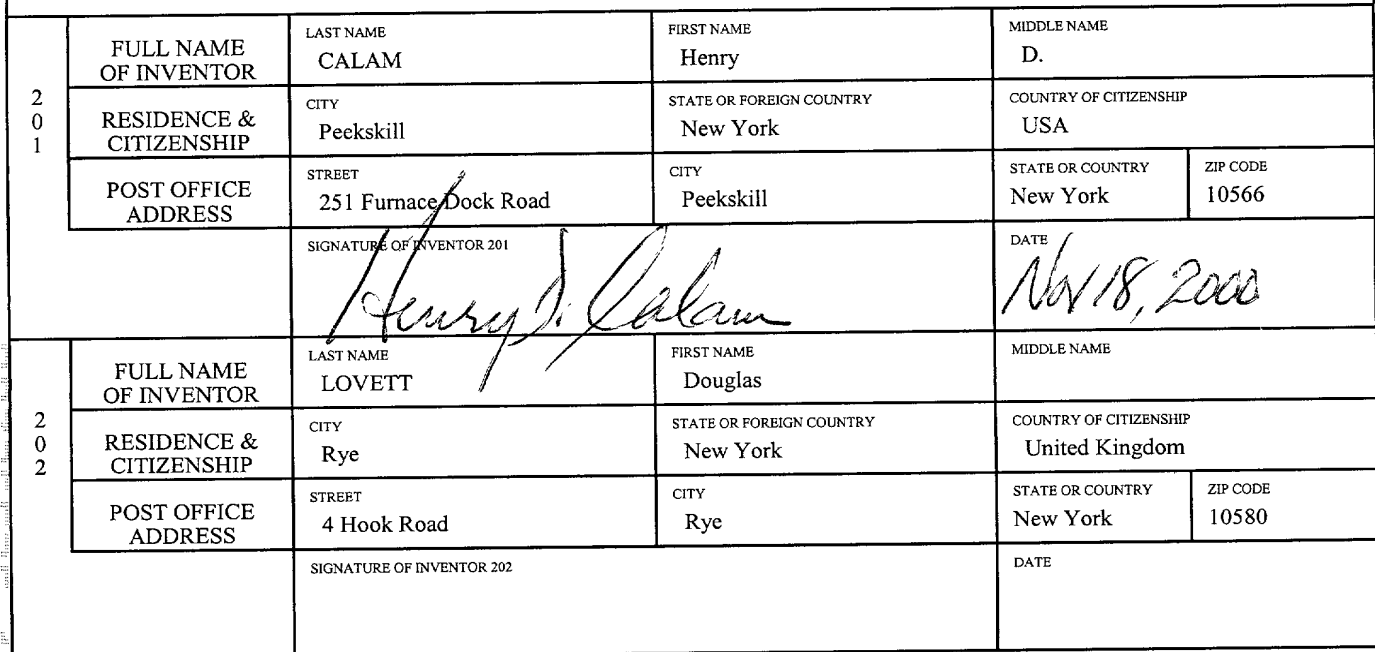 201
FULL NAME OF INVENTOR
LAST NAME
CALAM
FIRST NAME
Henry
MIDDLE NAME
D.
RESIDENCE & CITIZENSHIP
CITY
Peekskill
STATE OR FOREIGN COUNTRY
New York
COUNTRY OF CITIZENSHIP
USA
POST OFFICE ADDRESS
STREET
251 Furnace Dock Road
CITY
Peekskill
STATE OR COUNTRY
New York
ZIP CODE
10566
SIGNATURE OF INVENTOR 201
Henry D. Calam
DATE
Nov 18, 2000
202
FULL NAME OF INVENTOR
LAST NAME
LOVETT
FIRST NAME
Douglas
MIDDLE NAME
RESIDENCE & CITIZENSHIP
CITY
Rye
STATE OR FOREIGN COUNTRY
New York
COUNTRY OF CITIZENSHIP
United Kingdom
POST OFFICE ADDRESS
STREET
4 Hook Road
CITY
Rye
STATE OR COUNTRY
New York
ZIP CODE
10580
SIGNATURE OF INVENTOR 202
DATE